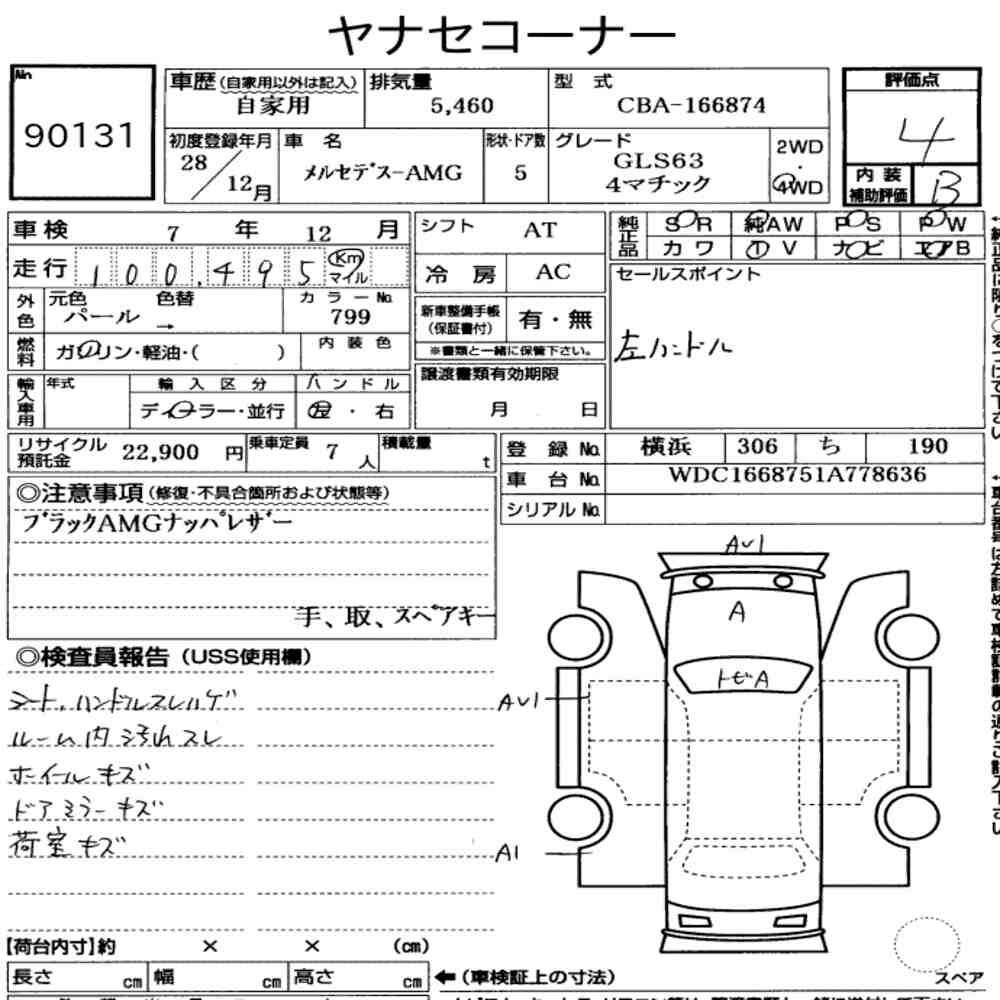 ヤナセコーナー
No.
90131
車歴(自家用以外は記入)
自家用
排気量
5,460
型式
CBA-166874
評価点
4
初度登録年月
28/12月
車名
メルセデスーAMG
形状・ドア数
5
グレード
GLS63
4マチック
2WD
・
4WD
内装
補助評価
B
車検 7年 12月
シフト
AT
純正品
SR
純AW
PS
PW
カワ
TV
ナビ
エアB
走行
100,495
Km
マイル
冷房
AC
セールスポイント
左ハンドル
外色
元色
パール
色替
→
カラーNo.
799
新車整備手帳
(保証書付)
有・無
※書類と一緒に保管下さい。
燃料
ガソリン・軽油・( )
内装色
譲渡書類有効期限
月 日
輸入車用
年式
輸入区分
ディーラー・並行
ハンドル
左・右
リサイクル
預託金
22,900円
乗車定員
7人
積載量
t
登録No.
横浜
306
ち
190
車台No.
WDC1668751A778636
シリアルNo.
◎注意事項(修復・不具合箇所および状態等)
ブラックAMGナッパレザー
手、取、スペアキー
◎検査員報告(USS使用欄)
シート、ハンドルスレハゲ
ルーム内汚れスレ
ホイールキズ
ドアミラーキズ
荷室キズ
AU1
A
トビA
AU1
A1
【荷台内寸】約 × × (cm)
長さ cm
幅 cm
高さ cm
←(車検証上の寸法)
スペア